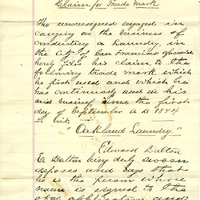 Claim for Trade Mark
The undersigned engaged in
carrying on the business of
conducting a Laundry, in
the City of San Francisco
files his claim to the
following trade mark which
is first used and which he
has continuously used in his
said business since the first
day of September A D 1874
to wit:
"Oakland Laundry"
Edward Dalton
E. Dalton being duly sworn
deposes and says that
he is the person whose
name is signed to the
application and